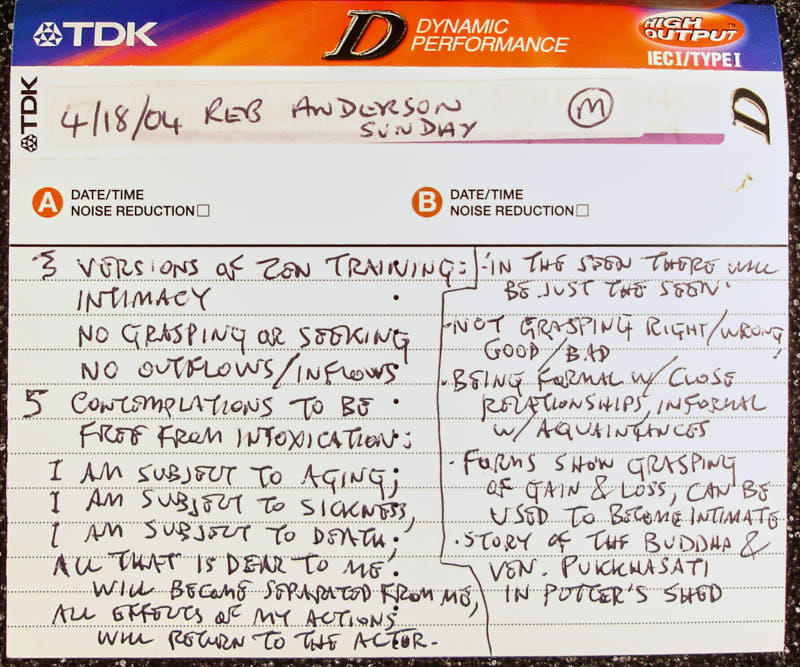 TDK
D DYNAMIC
PERFORMANCE
HIGH
OUTPUT
IEC I/TYPE I
TDK
4/18/04 REB ANDERSON
SUNDAY
M
D
A DATE/TIME
NOISE REDUCTION
B DATE/TIME
NOISE REDUCTION
3 VERSIONS OF ZEN TRAINING:
INTIMACY
NO GRASPING OR SEEKING
NO OUTFLOWS/INFLOWS
5 CONTEMPLATIONS TO BE
FREE FROM INTOXICATION:
I AM SUBJECT TO AGING;
I AM SUBJECT TO SICKNESS,
I AM SUBJECT TO DEATH;
ALL THAT IS DEAR TO ME
WILL BECOME SEPARATED FROM ME,
ALL EFFECTS OF MY ACTIONS
WILL RETURN TO THE ACTOR.
·IN THE SEEN THERE WILL
BE JUST THE SEEN.
·NOT GRASPING RIGHT/WRONG,
GOOD/BAD
·BEING FORMAL W/ CLOSE
RELATIONSHIPS, INFORMAL
W/ AQUAINTANCES
·FORMS SHOW GRASPING
OF GAIN & LOSS, CAN BE
USED TO BECOME INTIMATE
·STORY OF THE BUDDHA &
VEN. PUKKHASATI
IN POTTER'S SHED